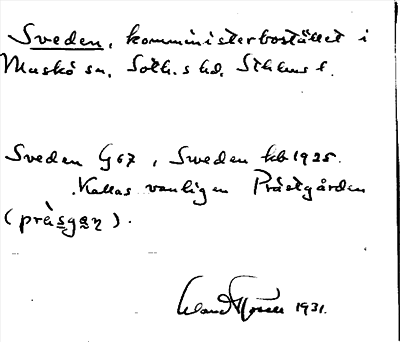 Sveden, komministerbostället i
Muskö sn, Soth.s hd, Sthlms l.
Sveden G67, Sweden kb 1925.
Kallas vanligen Prästgården
(prä̀sgaṇ).
1931.